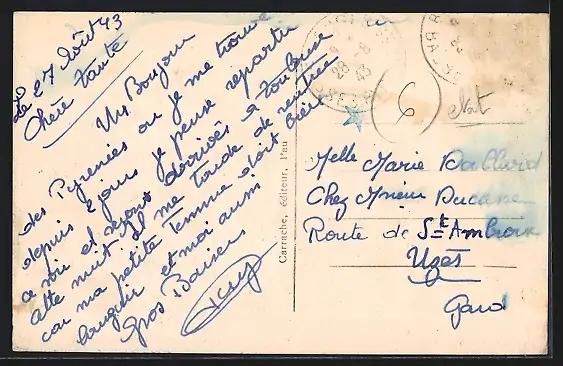 Le 27 Août 43
Chère Tante
Un Bonjour
des Pyrenées ou je me trouve
depuis 2 jours je pense repartir
ce soir et nous arrivés a Toulouse
cette nuit il me tarde de rentrée
car ma petite femme doit bien
languir et moi aussi
Gros Baisers
Carrache, éditeur, Pau
28 -8
43
6
Melle Marie
Chez Mnsieur Ducasse
Route de St Ambroix
Uzès
Gard